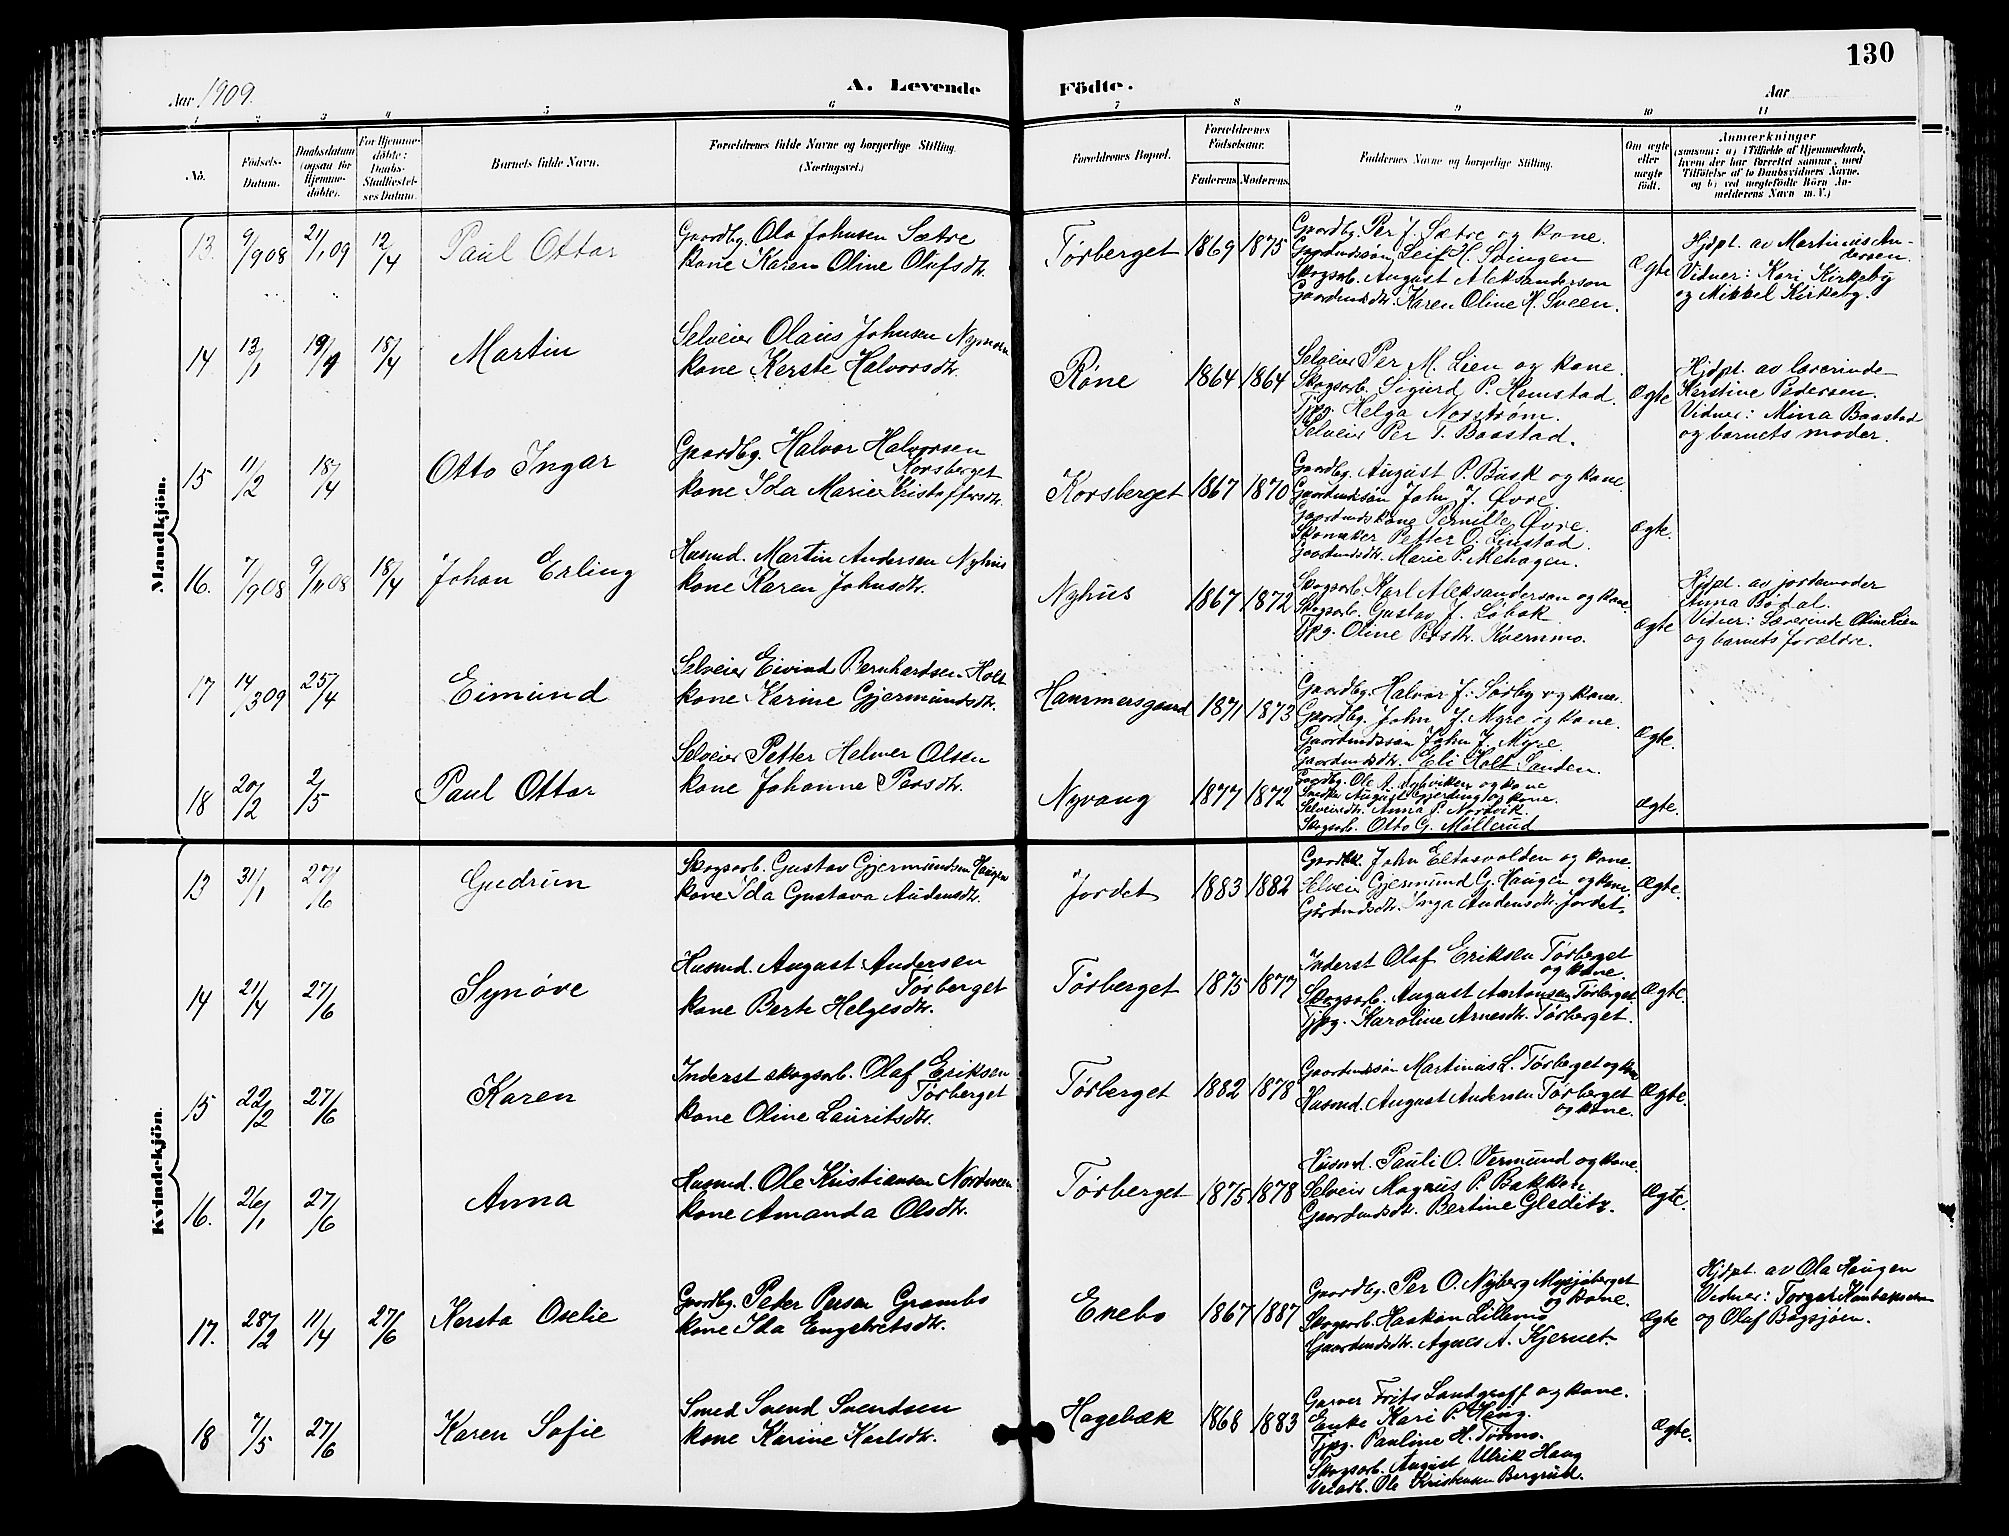 130
Aar 1909.
A. Levende
Fødte.
Aar
1 2 3 4 5 6 7 8 9 10 11
No.
Fødsels-Datum.
Daabsdatum (ogsaa for Hjemmedøbte).
For Hjemmedøbte: Daabs-Stadfæstelses Datum.
Barnets fulde Navn.
Forældrenes fulde Navne og borgerlige Stilling. (Næringsvei.)
Forældrenes Bopæl.
Forældrenes Fødselsaar.
Faderens. Moderens.
Faddernes Navne og borgerlige Stilling.
Om ægte eller uægte født.
Anmærkninger
(saasom: a) i Tilfælde af Hjemmedaab, hvem der har forrettet samme, med Tilføielse af to Daabsvidners Navne, og b) ved uægtefødte Børn Anmelderens Navn m. V.)
Mandkjøn.
13. 9/908 21/1 09 12/4 Paul Ottar
Gaardbg. Ola Johnsen Sætre
kone Karen Oline Olufsdtr.
Tørberget 1869 1875
Gaardbg. Per J. Sætre og kone.
Gaardmdssøn Leif H. Støingen
Skogsarb. August Aleksandersen
Gaardmdsdtr. Karen Oline H. Sveen.
Ægte
Hjdpt. av Martinius Andersen.
Vidner: Kari Kirkeby
og Mikkel Kirkeby.
14 13/1 19/1 18/4 Martin
Selveier Olaus Johnsen Nymoen
kone Kerste Halvorsdtr.
Røne 1864 1864
Selveier Per M. Lien og kone.
Skogsarb. Sigurd P. Hemstad.
Tjpg. Helga Norstrøm.
Selveier Per T. Baastad.
Ægte
Hjdpt. av lærerinde
Kerstine Pedersen.
Vidner: Mina Baastad
og barnets moder.
15 11/2 18/4 Otto Ingar
Gaardbg. Halvor Halvorsen
Korsberget
kone Ida Marie Kristoffersdtr.
Korsberget 1867 1870
Gaardbg. August P. Busk og kone.
Gaardmdssøn John J. Øvre.
Gaardmdskone Pernille Øvre.
Skomaker Petter O. Linstad.
Gaardmdsdtr. Marie P. Mehagen.
Ægte.
16. 7/908 9/11 08 18/4 Johan Erling
Husmd. Martin Andersen Nyhus
kone Karen Johnsdtr.
Nyhus 1867 1872
Skogsarb. Karl Aleksandersen og kone.
Skogsarb. Gustav J. Løbak
Tjpg. Oline Persdtr. Kvernmo.
Ægte
Hjdpt. av jordemoder
Anna Bødal.
Vidner: Lærerinde Oline Lien
og barnets forældre.
17 14/3 09 25/4 Eimund
Selveier Eivind Bernhardsen Holt
kone Karine Gjermundsdtr.
Hammersgaard 1871 1873
Gaardbg. Halvor J. Sørby og kone.
Gaardbg. John J. Myre og kone.
Gaardmdssøn John J. Myre.
Gaardmdsdtr. Eli Holt Sanden.
Ægte.
18 20/2 2/5 Paul Ottar
Selveier Petter Helmer Olsen
kone Johanne Persdtr.
Nyvang 1877 1872
Gaardbg. Ole A. Nysviken og kone
Smeden August Gjerding og kone.
Selveierdtr. Anna P. Nordvik.
Skogsarb. Otto G. Møllerud
Ægte.
Kvindekjøn.
13 31/1 27/6 Gudrun
Skogsarb. Gustav Gjermundsen Haugen
kone Ida Gustava Audensdtr.
Jordet 1883 1882
Gaardbr. John Eltasvolden og kone.
Selveier Gjermund G. Haugen og kone.
Gårdmdsdtr. Inga Audensdtr. Jordet.
Ægte.
14 21/4 27/6 Synøve
Husmd. August Andersen
Tørberget
kone Berte Helgesdtr.
Tørberget 1875 1877
Inderst Olaf Eriksen Tørberget
og kone.
Skogsarb. August Aastansen Tørberget
Tjpg. Karoline Arnesdtr. Tørberget.
Ægte.
15 22/2 27/6 Karen
Inderst skogsarb. Olaf Eriksen
Tørberget
kone Oline Lauritsdtr.
Tørberget 1882 1878
Gaardmdssøn Martinius L. Tørberget og kone
Husmd. August Andersen Tørberget
og kone.
Ægte.
16. 26/1 27/6 Anna
Husmd. Ole Kristiansen Nordmoen
kone Amanda Olsdtr.
Tørberget 1875 1878
Husmd. Pauli O. Vermund og kone.
Selveier Magnus P. Bakken
Gaardmdsdtr. Bertine Gleditz.
Ægte.
17. 28/2 11/4 27/6 Kersta Oselie
Gaardbg. Peter Persen Grambo
kone Ida Engebretsdtr.
Enebo 1867 1887
Gaardbg. Per O. Nyberg Mysjøberget
og kone.
Skogsarb. Haakon Lillemo
Gaardmdsdtr. Agnes A. Kjernet.
Ægte
Hjdpt. av Ola Haugen
Vidner: Torger
og Olaf Bagsjøen.
18 7/5 27/6 Karen Sofie
Smed Svend Svendsen
kone Karine Karlsdtr.
Hagebæk 1868 1883
Garver Frits Landgraff og kone.
Enke Kari P. Haug.
Tjpg. Pauline H. Tørmo.
Skogsarb. August Ulrik Haug
Veiarb. Ole Kristensen Bergrud.
Ægte.